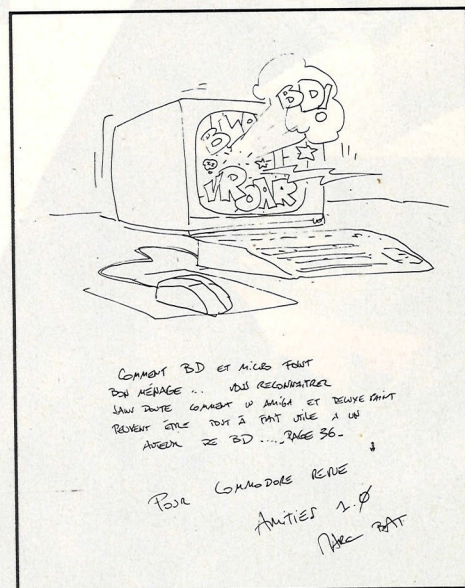 BD!
VROAR
COMMENT BD ET MICRO FONT
BON MÉNAGE ... VOUS RECONNAITREZ
SANS DOUTE COMMENT UN AMIGA ET DELUXE PAINT
PEUVENT ÊTRE TOUT À FAIT UTILE A UN
AUTEUR DE BD .... PAGE 36_
POUR COMMODORE REVUE
AMITIÉS 1.Ø
MARC BAT